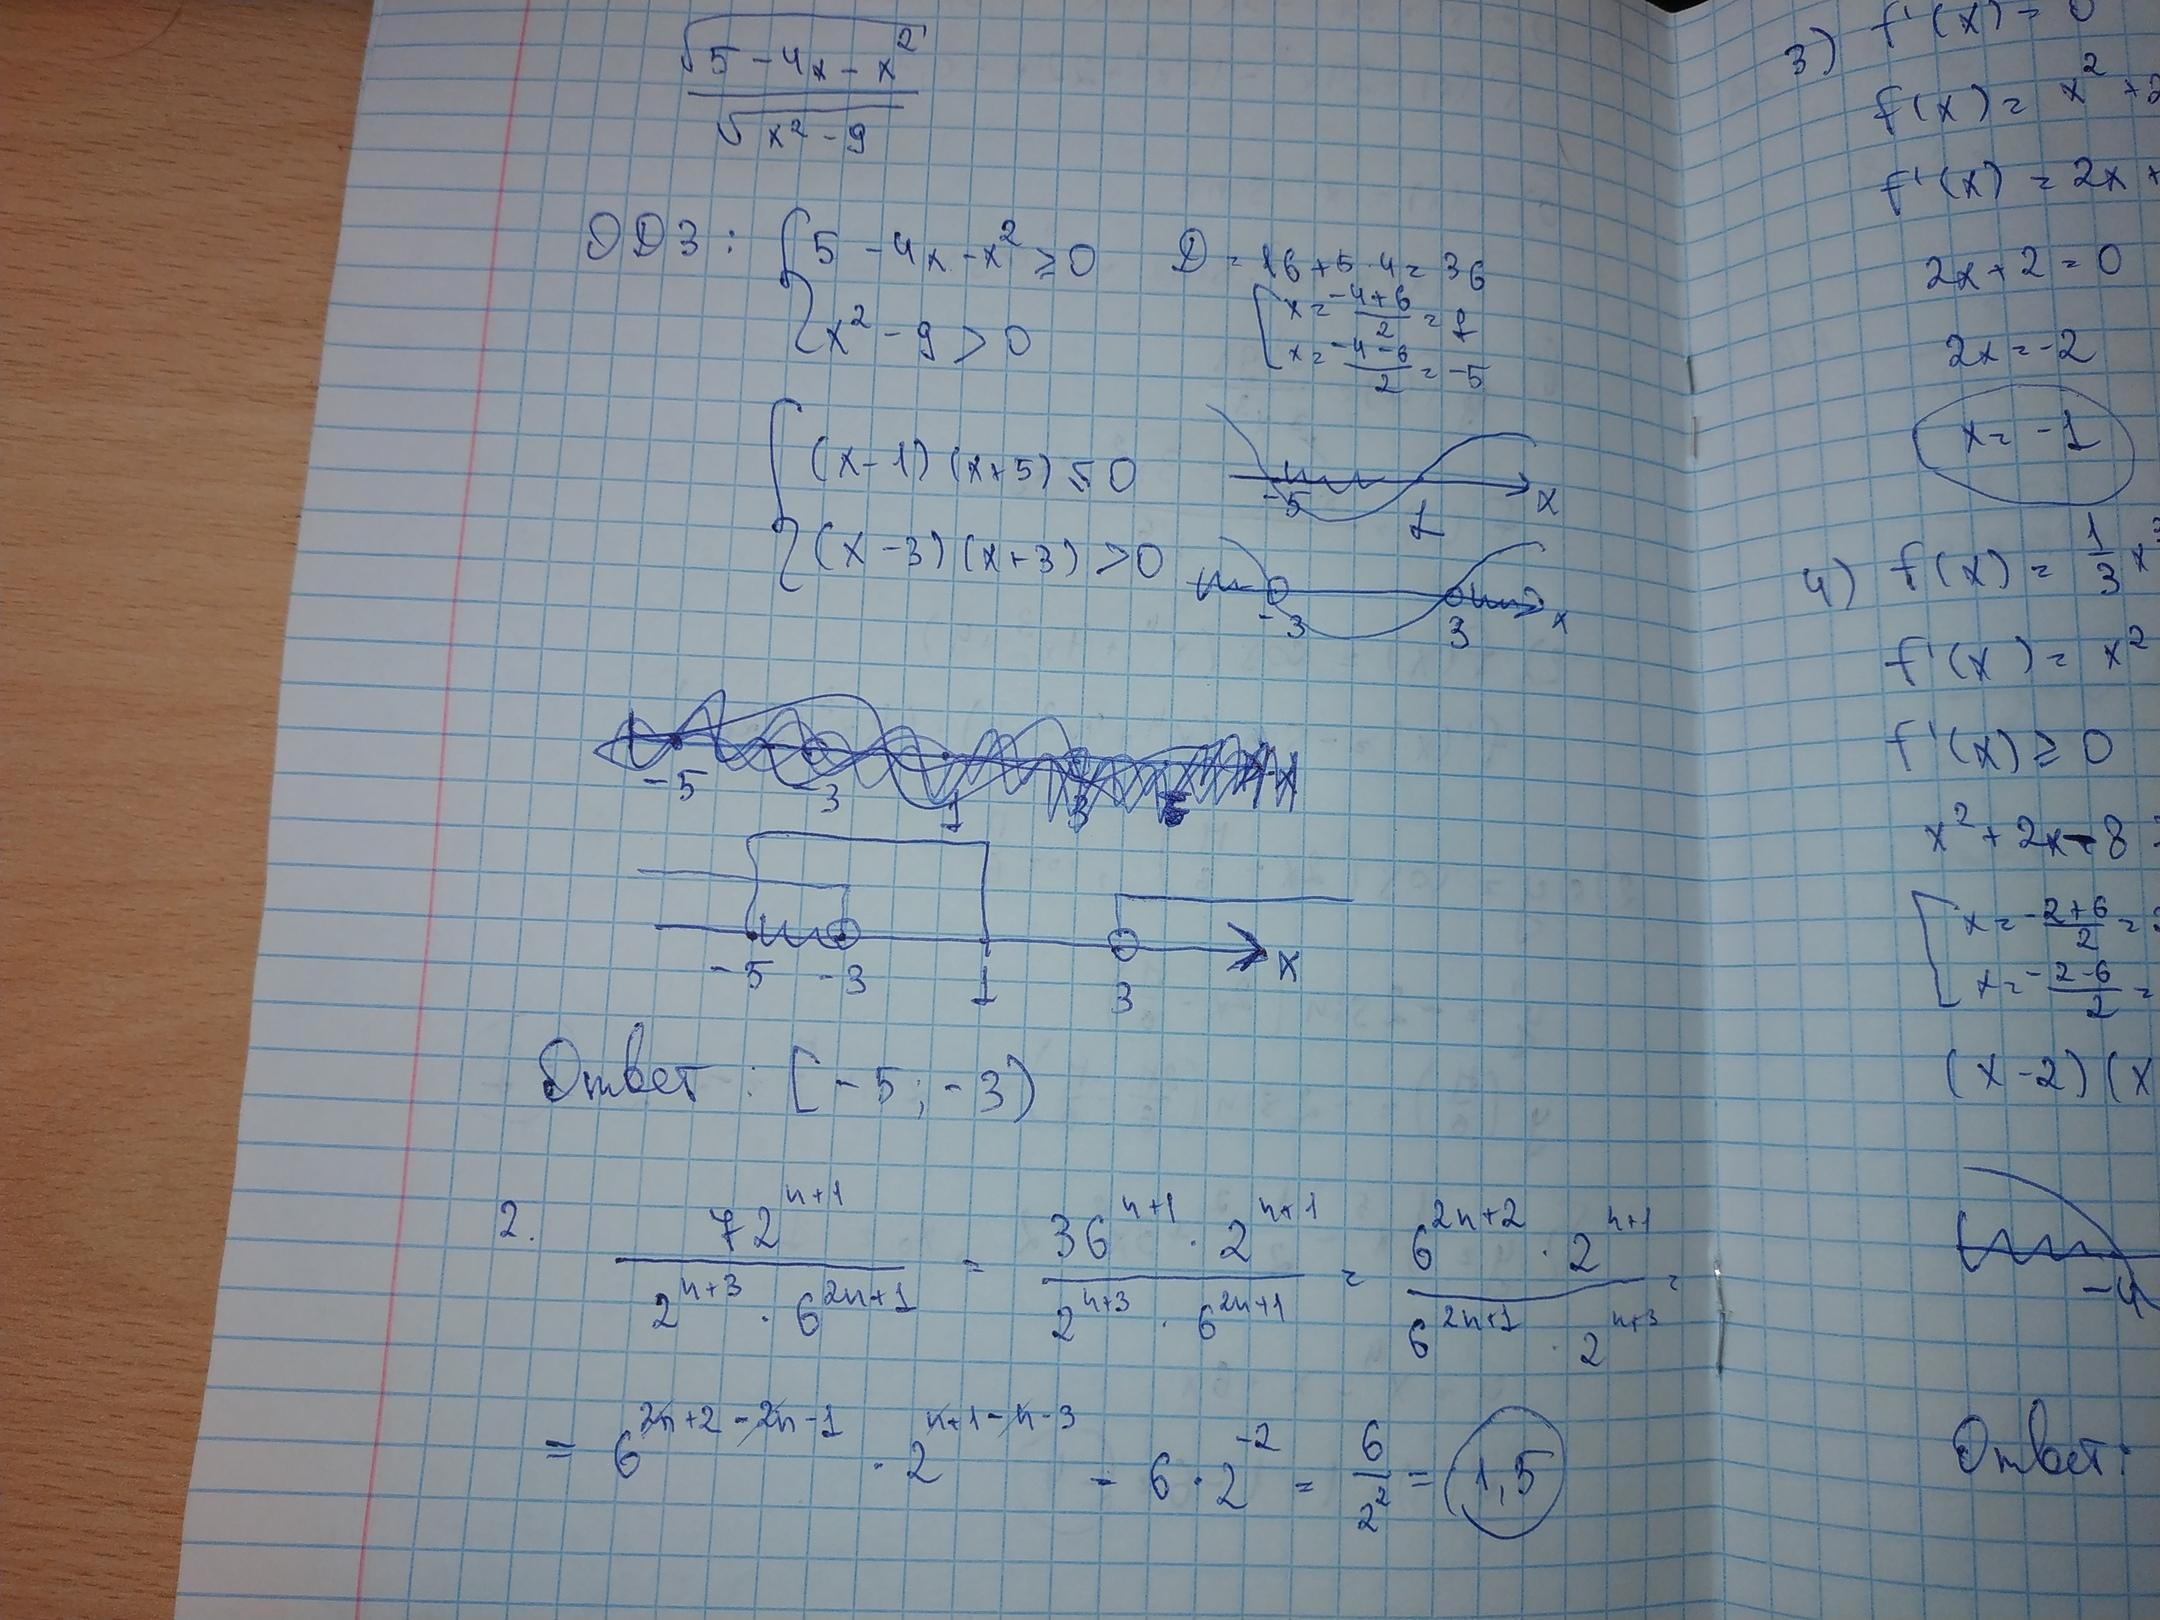 √(5 - 4x - x²)
√(x² - 9)
ОДЗ: { 5 - 4x - x² ≥ 0
x² - 9 > 0
D = 16 + 5·4 = 36
[ x = (-4+6)/2 = 1
x = (-4-6)/2 = -5
{ (x-1)(x+5) ≤ 0
(x-3)(x+3) > 0
-5 1 x
-3 3 x
-5 -3 1 3
-5 -3 1 3 x
Ответ: [-5; -3)
2. 72^(n+1) / (2^(n+3) · 6^(2n+1)) = (36^(n+1) · 2^(n+1)) / (2^(n+3) · 6^(2n+1)) = (6^(2n+2) · 2^(n+1)) / (6^(2n+1) · 2^(n+3)) =
= 6^(2n+2-2n-1) · 2^(n+1-n-3) = 6 · 2^(-2) = 6/2² = 1,5
3) f'(x) = 0
f(x) = x² +
f'(x) = 2x +
2x + 2 = 0
2x = -2
x = -1
4) f(x) = 1/3 x³
f'(x) = x²
f'(x) ≥ 0
x² + 2x - 8
[ x = (-2+6)/2 =
x = (-2-6)/2 =
(x-2)(x
-4
Ответ: